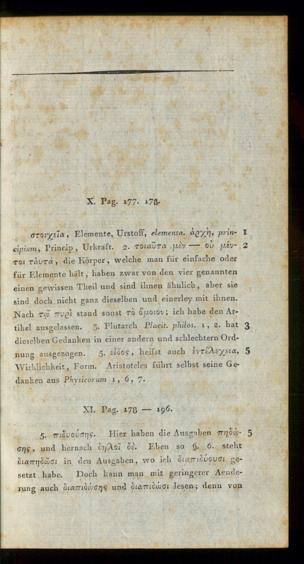 X. Pag. 177. 178.
στοιχεῖα, Elemente, Urstoff, elementa. ἀρχὴ, prin- 1
cipium, Princip, Urkraft. 2. τοιαῦτα μὲν — οὐ μέν- 2
τοι ταῦτα, die Körper, welche man für einfache oder
für Elemente hält, haben zwar von den vier genannten
einen gewissen Theil und sind ihnen ähnlich, aber sie
sind doch nicht ganz dieselben und einerley mit ihnen.
Nach τῷ πυρὶ stand sonst τὸ ὅμοιον; ich habe den Ar-
tikel ausgelassen. 3. Plutarch Placit. philos. 1, 2. hat 3
dieselben Gedanken in einer andern und schlechtern Ord-
nung ausgezogen. 5. εἶδος, heifst auch ἐντέλεχεια, 5
Wirklichkeit, Form. Aristoteles führt selbst seine Ge-
danken aus Physicorum 1, 6, 7.
XI. Pag. 178 — 196.
5. πιδυούσης. Hier haben die Ausgaben πηδώ- 5
σης, und hernach δηλοῖ δέ. Eben so 9, 6. steht
διαπηδῶσι in den Ausgaben, wo ich διαπιδύουσι ge-
setzt habe. Doch kann man mit geringerer Aende-
rung auch διαπιδώσης und διαπιδῶσι lesen; denn von